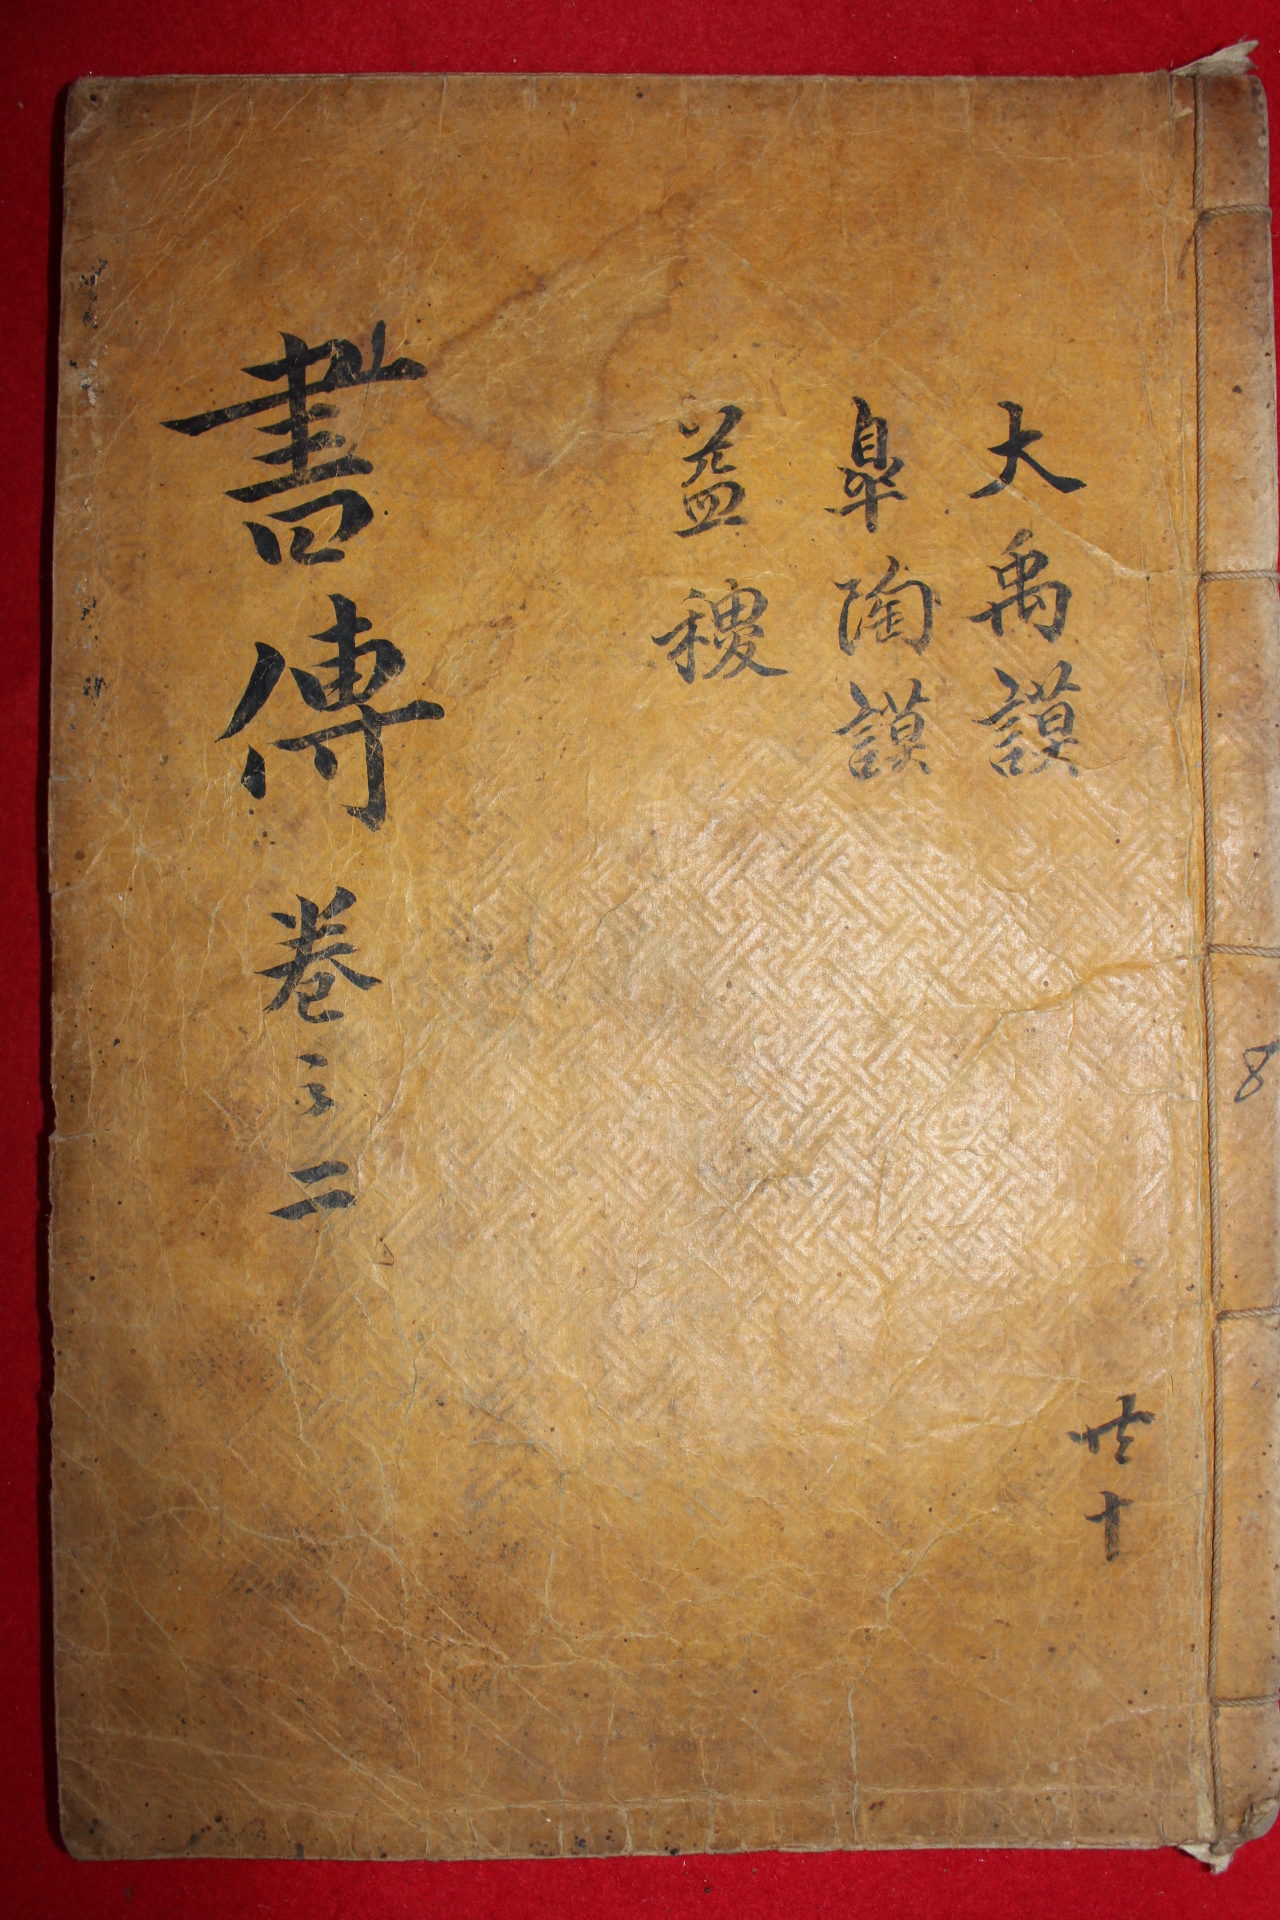 大禹謨
皐陶謨
益稷
書傳 卷之二
共十
8